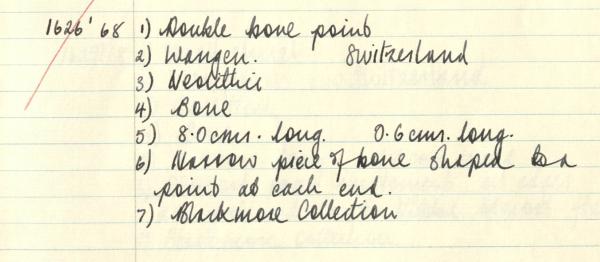 1626' 68 1) Double bone point
2) Wangen. Switzerland
3) Neolithic
4) Bone
5) 8.0cms. long. 0.6cms. long.
6) Narrow piece of bone shaped to a
point at each end.
7) Blackmore Collection